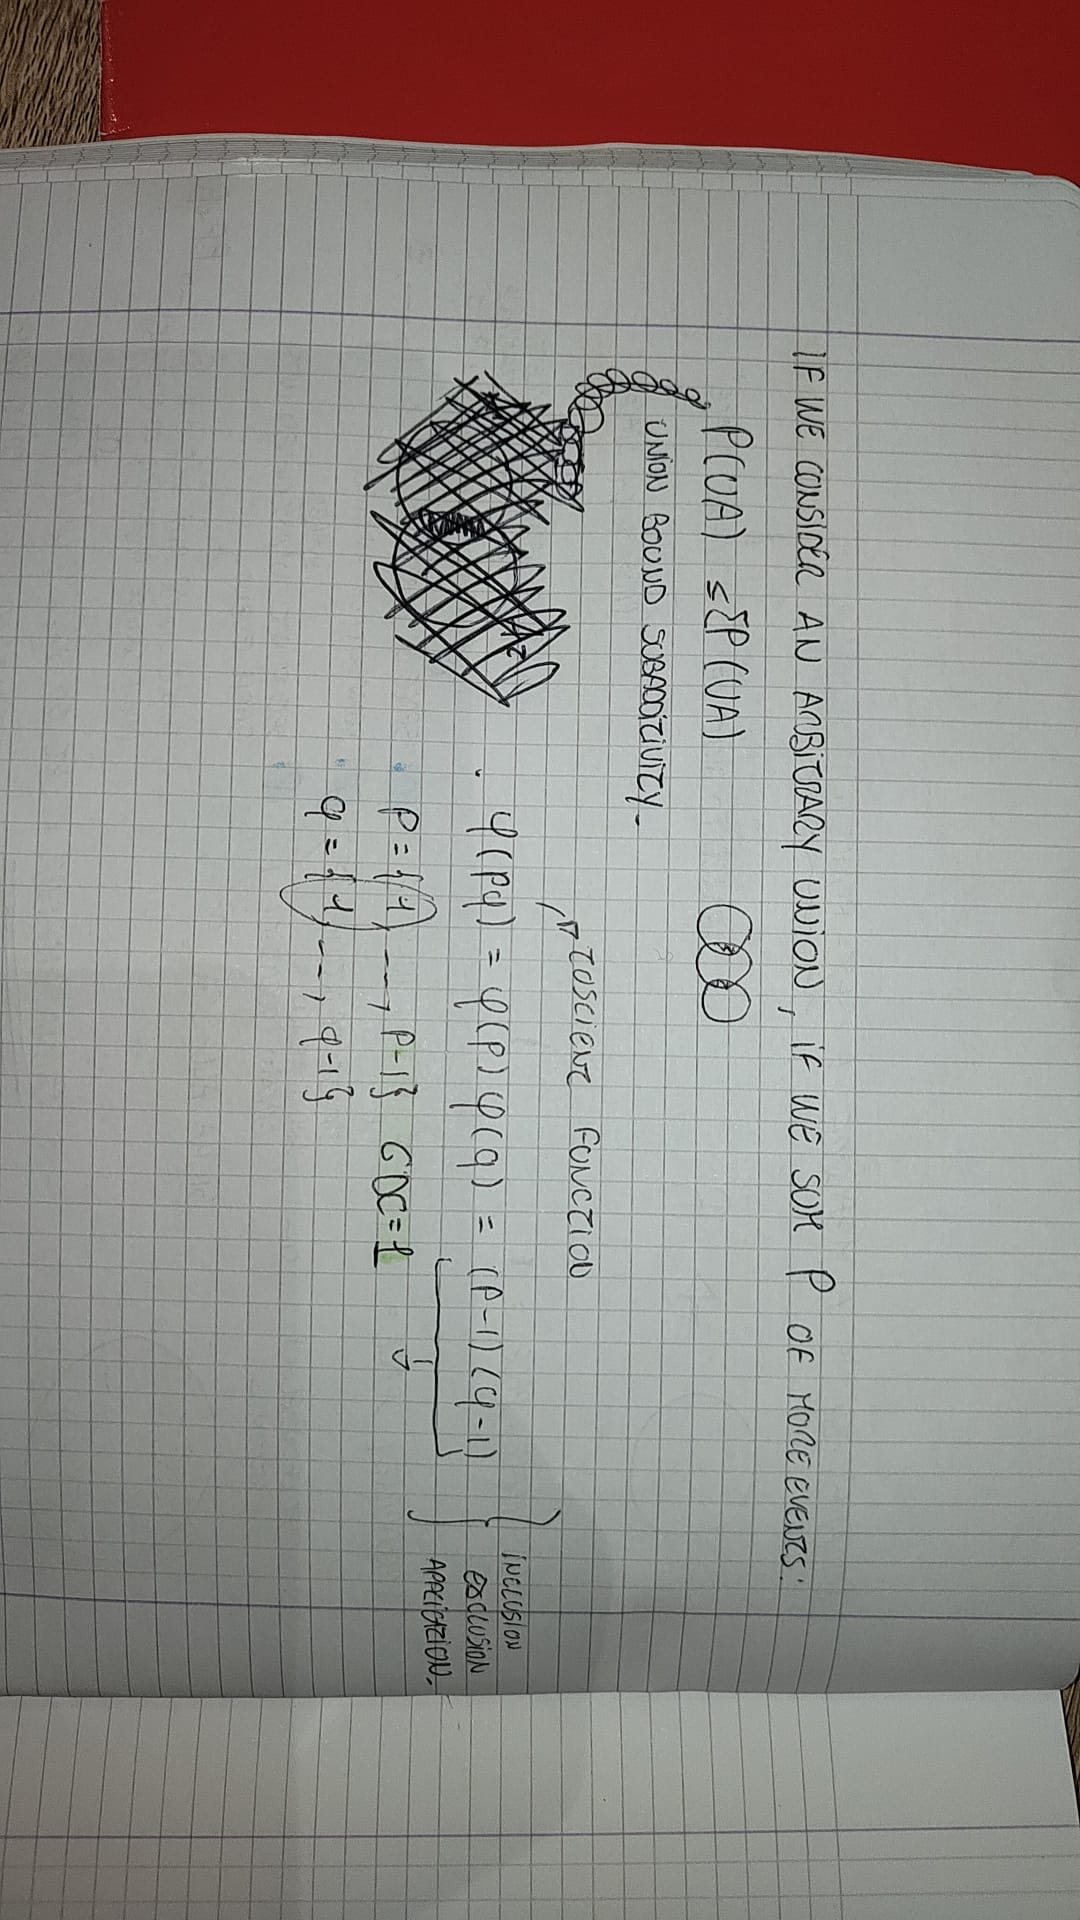 IF WE CONSIDER AN ARBITRARY UNION, IF WE SUM P OF MORE EVENTS:
P(UA) ≤ΣP(UA)
UNION BOUND SUBADDITIVITY-
TOSCIENT FUNCTION
φ(pq) = φ(p) φ(q) = (p-1) (q-1)
INCLUSION
EXCLUSION
APPLICATION-
P = {1, --, P-1} GDC=1
q = {1, --, q-1}